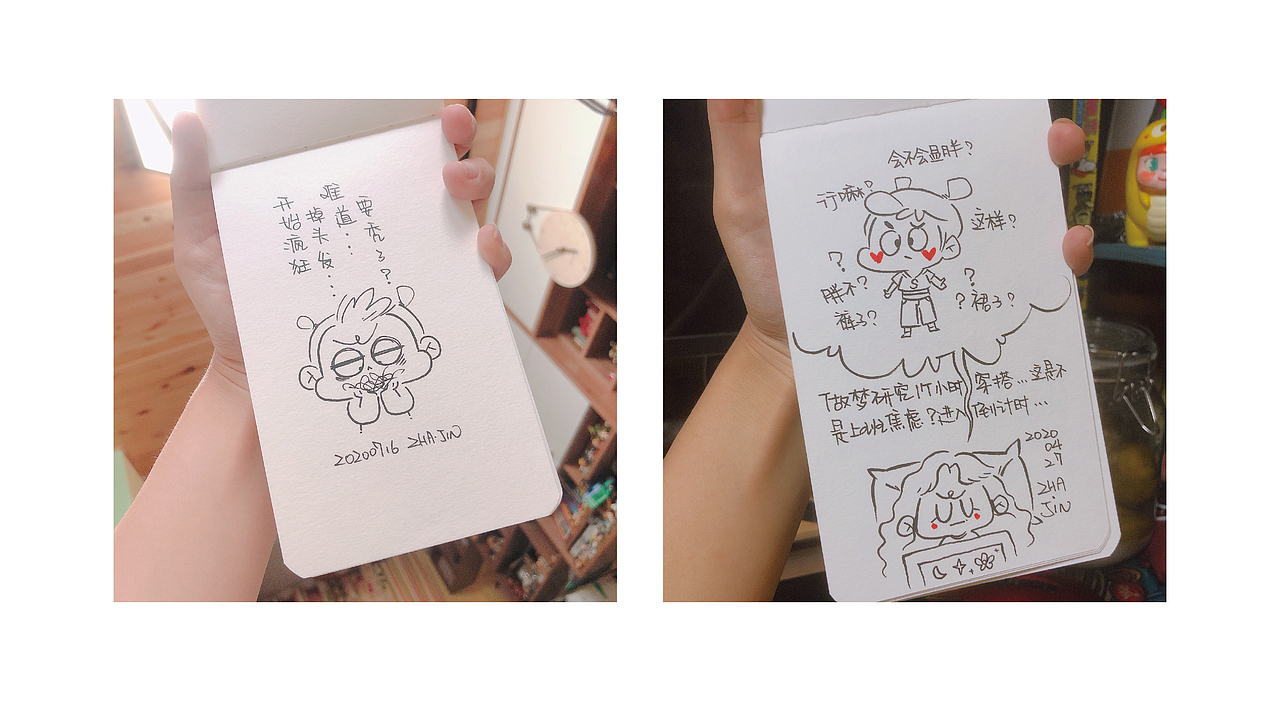 开始疯狂
掉头发…
难道……
要秃了?
20200716 ZHA·JIN
会不会显胖?
行嘛?
这样?
?
胖不?
裤子?
?
? 裙子?
做梦研究1个小时穿搭…这是不
是上班焦虑?进入倒计时…
2020
04
27
ZHA
·JIN